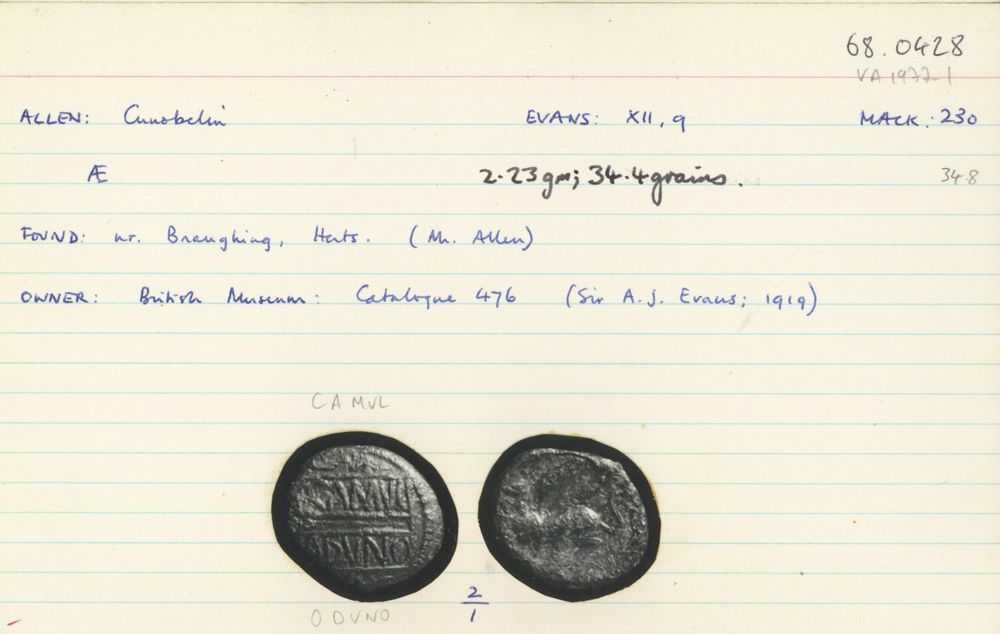 68.0428
VA 1977-1
ALLEN: Cunobelin EVANS: XII, 9 MACK: 230
Æ 2.23 gm; 34.4 grains. 34.8
FOUND: nr. Braughing, Herts. (Mr. Allen)
OWNER: British Museum: Catalogue 476 (Sir A.J. Evans; 1919)
CAMVL
CAMVL
ODVNO
2/1
ODVNO